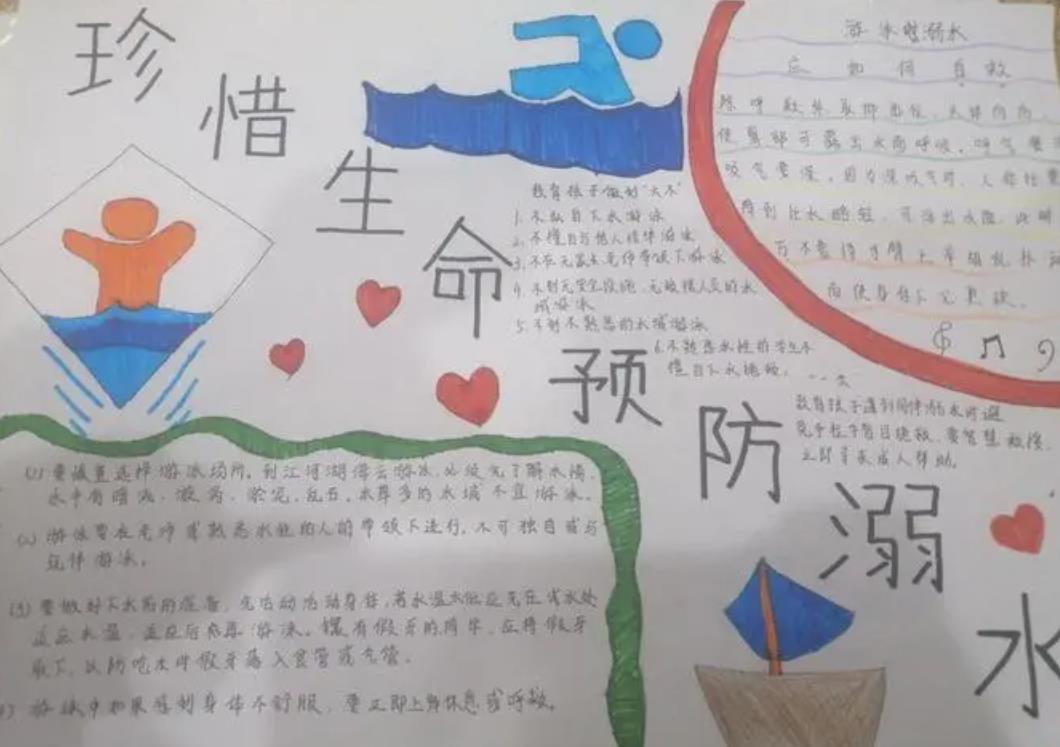 珍惜生命预防溺水
游泳时溺水
应如何自救
除呼救外,取仰卧位,头部向后,
使鼻部可露出水面呼吸,呼气要
吸气要深,因为深吸气时,人体比重
降到比水略轻,可浮出水面,此时
万不要将手臂上举胡乱扑动
而使身体下沉更快。
教育孩子做到"六不"
1.不私自下水游泳
2.不擅自与他人结伴游泳
3.不在无家长老师带领下游泳
4.不到无安全设施、无救援人员的水
域游泳
5.不到不熟悉的水域游泳
6.不熟悉水性的学生不
擅自下水施救。
教育孩子遇到同伴溺水时避
免手拉手盲目施救,要智慧救援,
立即寻求成人帮助。
(1)要慎重选择游泳场所,到江河湖海去游泳,必须先了解水情,
水中有暗流、漩涡、淤泥、乱石、水草多的水域不宜游泳。
(2)游泳要在老师或熟悉水性的人的带领下进行,不可独自或与
玩伴游泳。
(3)要做好下水前的准备,先活动活动身体,若水温太低应先在浅水处
适应水温,适应后再游泳。镶有假牙的同学,应将假牙
取下,以防呛水时假牙落入食管或气管。
游泳中如果感到身体不舒服,要立即上岸休息或呼救。